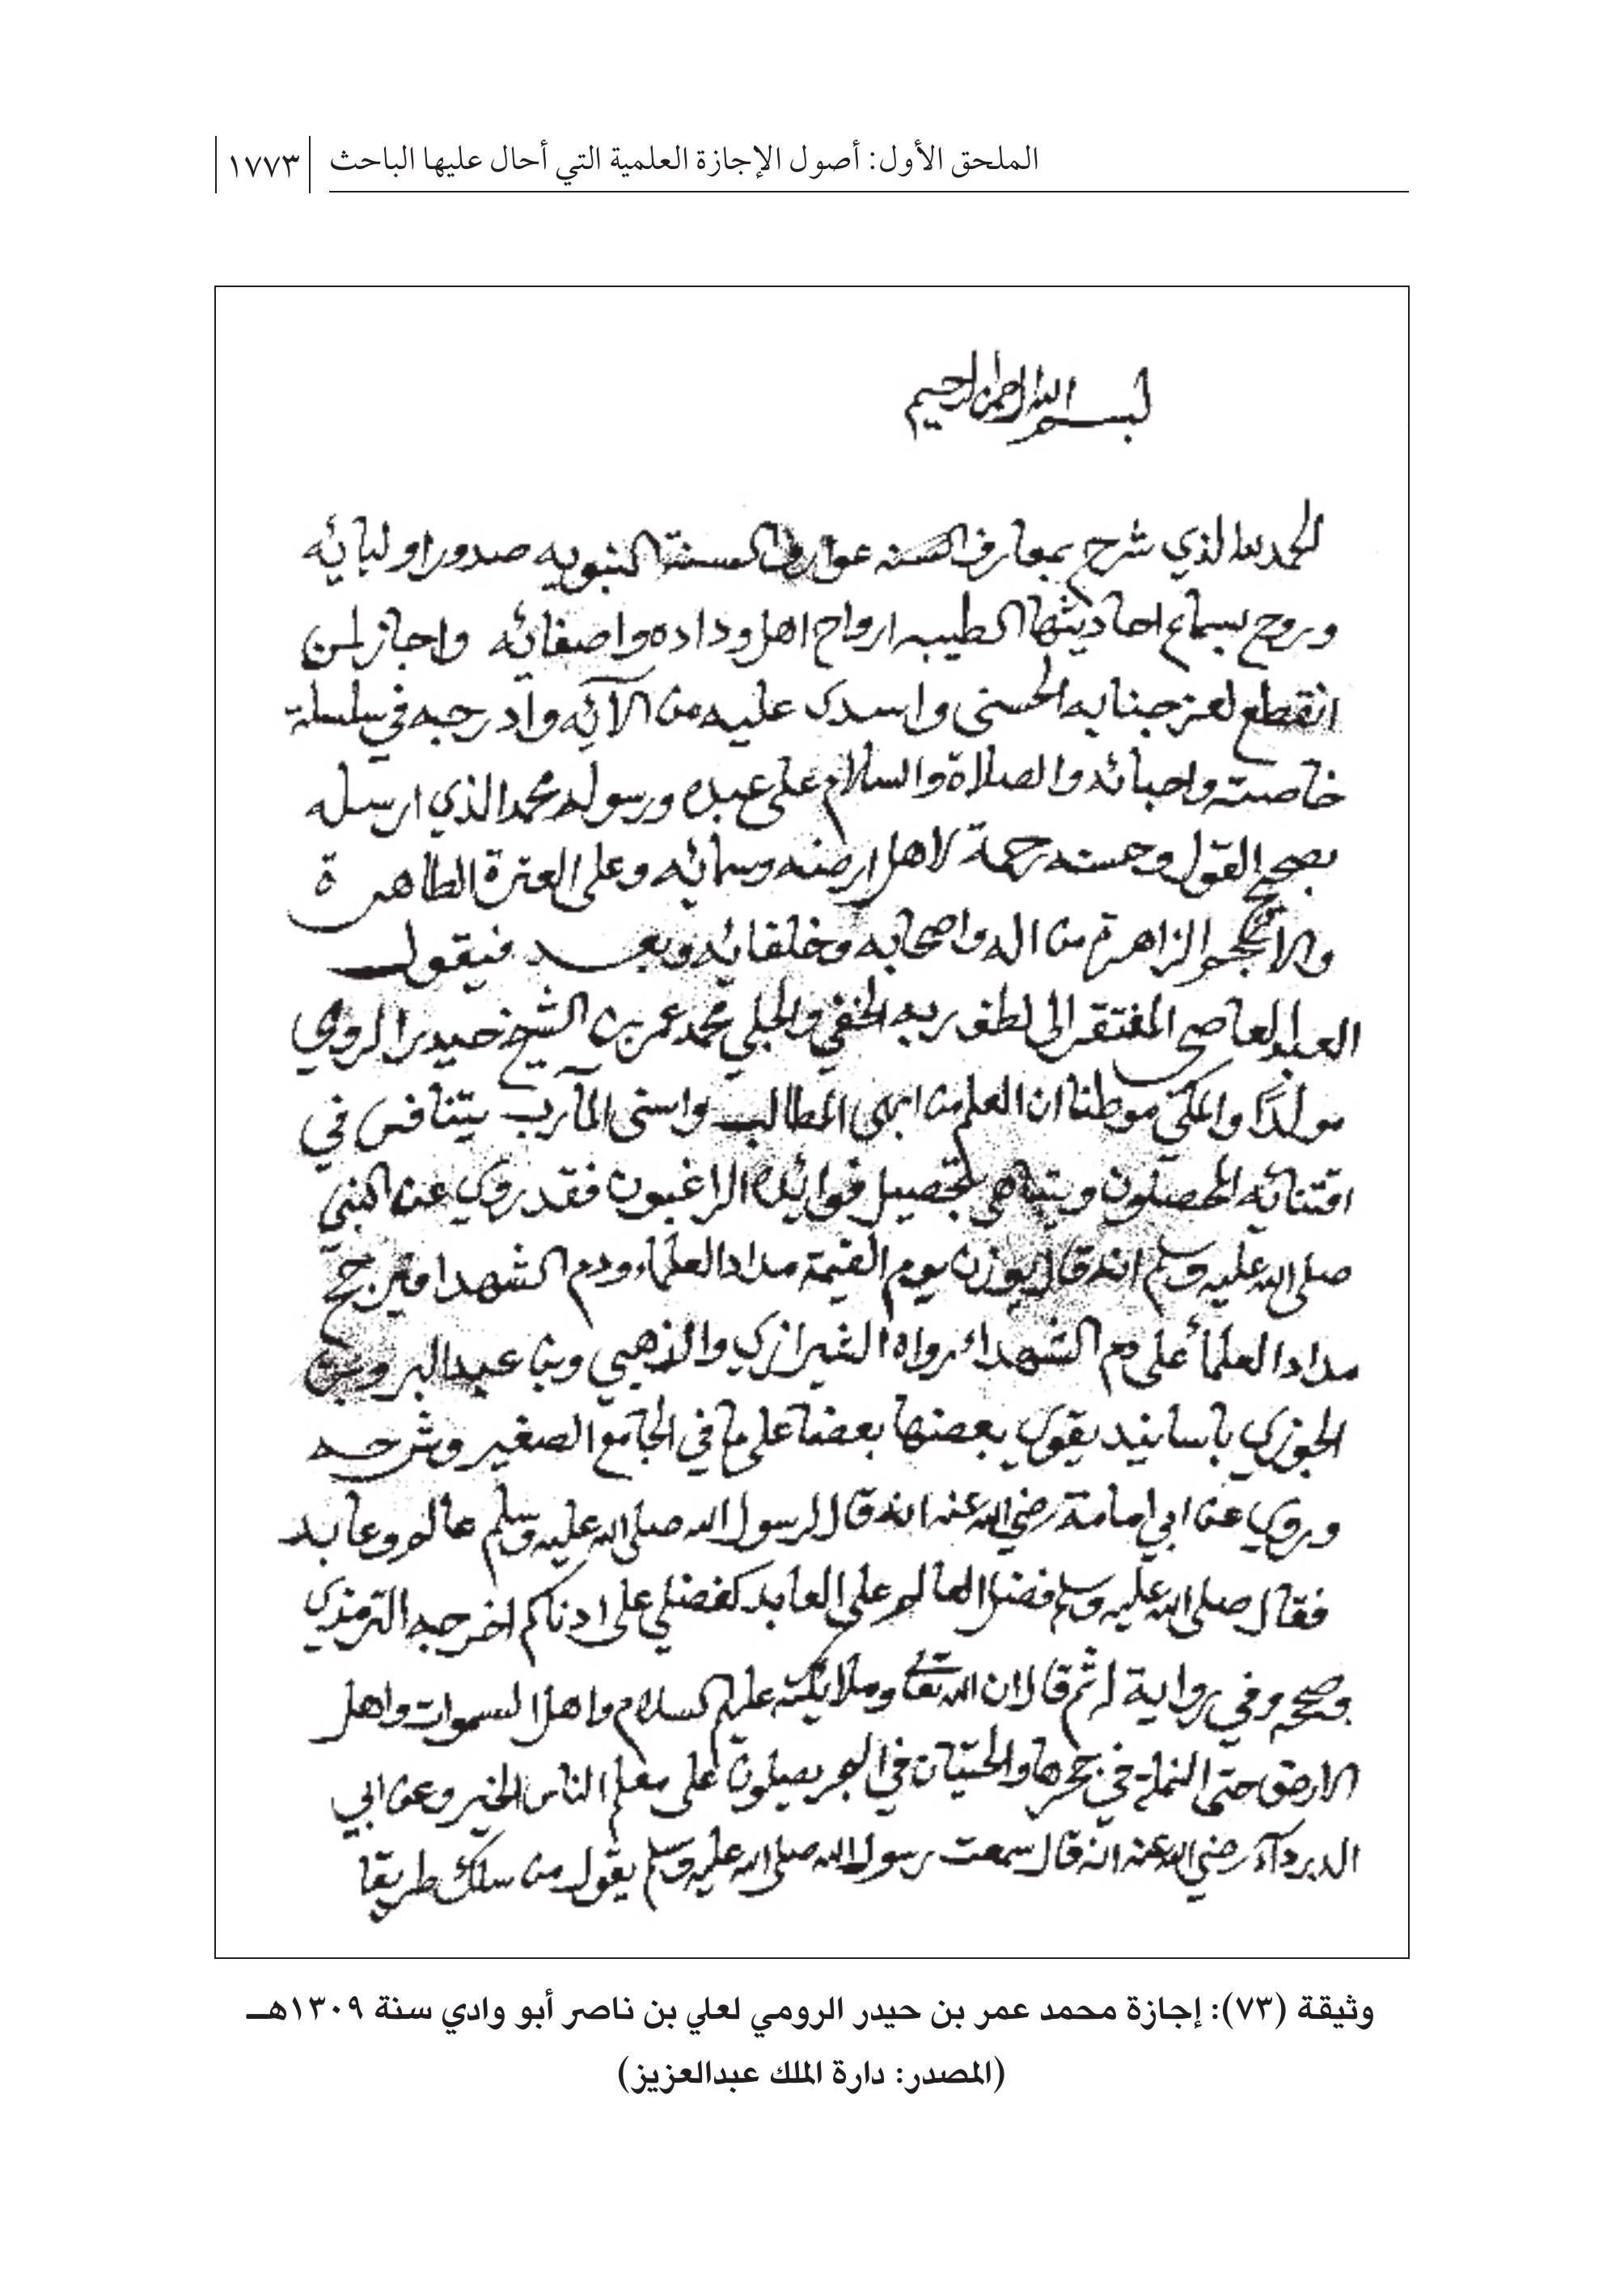 الملحق الأول: أصول الإجازة العلمية التي أحال عليها الباحث ١٧٧٣
بسم الله الرحمن الرحيم
الحمد لله الذي شرح بمعارف عوارف السنة النبويه صدور اوليائه
وروح بسماع احاديثها الطيبه ارواح اهل وداده واصفيائه واجاز لمن
انقطع لعز جنابه الحسنى واسدى عليه من الآئه وادرجه في سلسلة
خاصته واحبائه والصلاة والسلام على عبده ورسوله محمد الذي ارسله
بصحيح القول وحسنه رحمة لاهل ارضه وسمائه وعلى العترة الطاهرة
والانجم الزاهرة من اله واصحابه وخلفائه وبعد فيقول
العبد العاصي المفتقر الى لطف ربه الخفي والجلي محمد عمر بن الشيخ حيدر الرومي
مولدًا والمكي موطنا ان العلم من ابهى المطالب واسنى المآرب يتنافس في
اقتنائه المحصلون ويتباهى بتحصيل فوائده الراغبون فقد روي عن النبي
صلى الله عليه وسلم انه قال يوزن يوم القيمة مداد العلماء ودم الشهدا فيرجح
مداد العلماء على دم الشهداء رواه الشيرازي والذهبي وبن عبد البر وبن
الجوزي باسانيد يقوي بعضها بعضا على ما في الجامع الصغير وشرحه
وروي عن ابي امامة رضي الله عنه انه قال لرسول الله صلى الله عليه وسلم عالم وعابد
فقال صلى الله عليه وسلم فضل العالم على العابد كفضلي على ادناكم اخرجه الترمذي
وصححه وفي رواية له ثم قال ان الله تعالى وملائكته عليهم السلام واهل السموات واهل
الارض حتى النملة في جحرها والحيتان في البحر يصلون على معلم الناس الخير وعن ابي
الدرداء رضي الله عنه انه قال سمعت رسول الله صلى الله عليه وسلم يقول من سلك طريقا
وثيقة (٧٣): إجازة محمد عمر بن حيدر الرومي لعلي بن ناصر أبو وادي سنة ١٣٠٩هــ
(المصدر: دارة الملك عبدالعزيز)